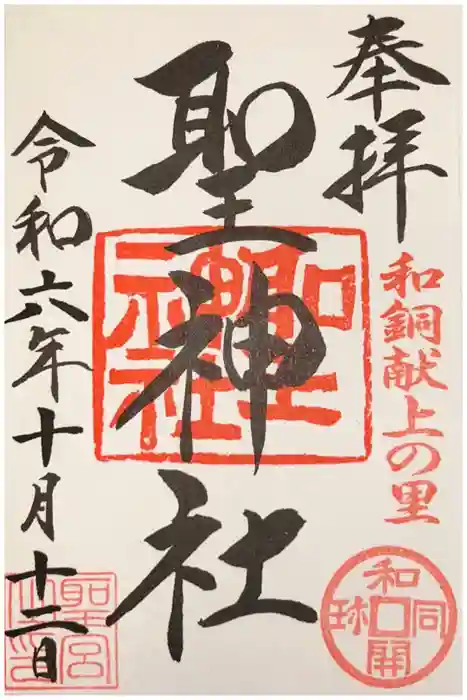 奉拝
和銅献上の里
和同開珎
聖神社
聖神社
令和六年十月十二日